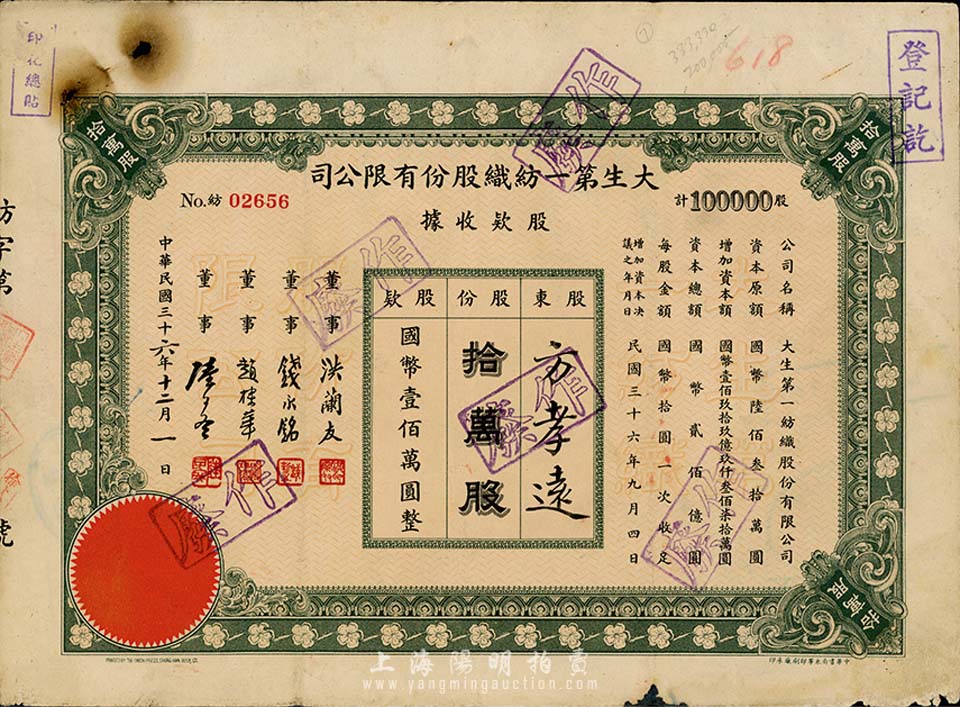 印花總貼
登記訖
618
333,330
拾萬股
拾萬股
大生第一紡織股份有限公司
No.紡 02656
計100000股
股款收據
公司名稱 大生第一紡織股份有限公司
資本原額 國幣陸佰叁拾萬圓
增加資本額 國幣壹佰玖拾玖億玖仟叁佰柒拾萬圓
資本總額 國幣貳佰億圓
每股金額 國幣拾圓一次收足
增加資本決議之年月日 民國三十六年九月四日
股東 方孝遠
股份 拾萬股
股款 國幣壹佰萬圓整
董事 洪蘭友
董事 錢永銘
董事 趙棣華
董事
中華民國三十六年十二月一日
作廢
作廢
作廢
作廢
作廢
拾萬股
方字第
號
中華書局永寧印刷廠承印
上海陽明拍賣
www.yangmingauction.com